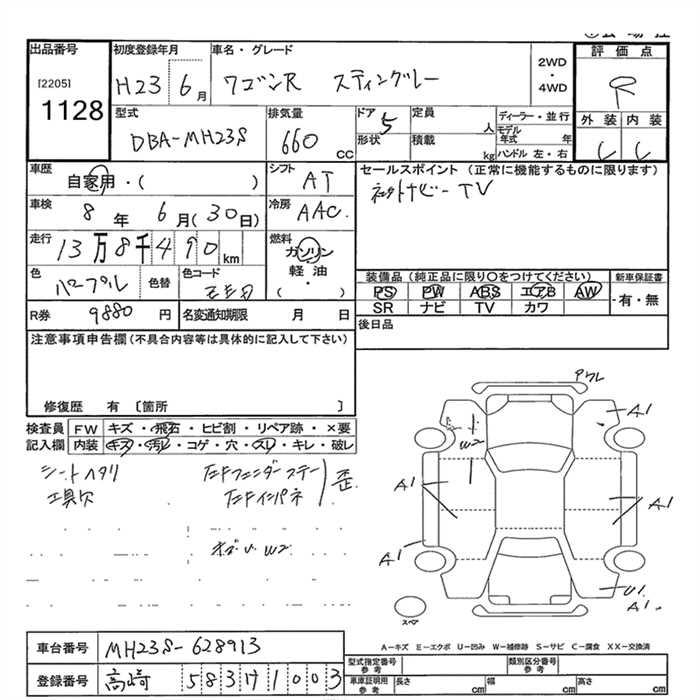 出品番号
[2205]
1128
初度登録年月
H23 6月
車名・グレード
ワゴンR スティングレー
2WD
・
4WD
評価点
R
型式
DBA-MH23S
排気量
660
CC
ドア
5
形状
定員
人
積載
kg
ディーラー・並行
モデル
年式 年
ハンドル 左・右
外装 内装
車歴
自家用・( )
シフト
AT
セールスポイント (正常に機能するものに限ります)
ネットナビーTV
車検
8年 6月(30日)
冷房
AAC
走行
13万8千490km
燃料
ガソリン
軽油
・
( )
色
パープル
色替
色コード
装備品(純正品に限り○をつけてください)
PS PW ABS エアB AW
SR ナビ TV カワ
新車保証書
・有・無
R券
9880円
名変通知期限 月 日
後日品
注意事項申告欄(不具合内容等は具体的に記入して下さい)
修復歴 有 〔箇所 〕
検査員
記入欄
FW キズ・飛石・ヒビ割・リペア跡・×要
内装 キズ・汚レ・コゲ・穴・スレ・キレ・破レ
シートヘタリ
工具欠
左Fフェンダーステー
左Fインパネ
歪
W2
アワレ
A1
W2
A1
A1
A1
U1
A1
スペア
A-キズ E-エクボ U-凹み W-補修跡 S-サビ C-腐食 XX-交換済
車台番号
MH23S-628913
登録番号
高崎 583 1003
型式指定番号
参考
類別区分番号
参考
車庫証明用
参考
長さ cm
幅 cm
高さ cm